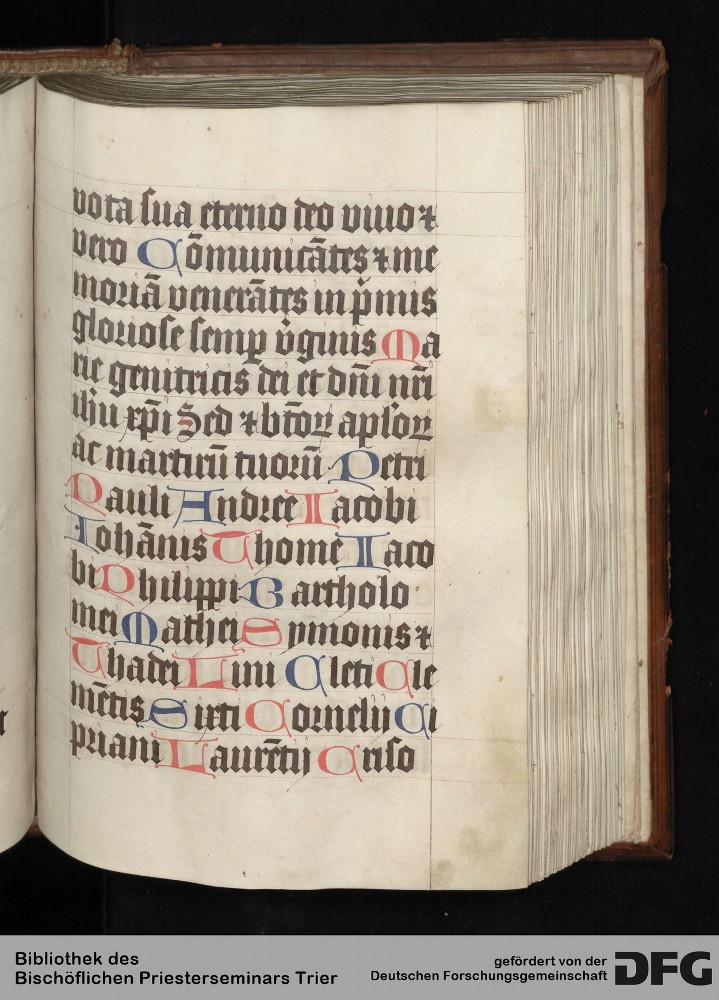 vota sua eterno deo vivo ⁊
vero Cōmunicātes ⁊ me
moriā venerātes in p̄mis
gloriose semꝑ v̄ginis Ma
rie genitricis dei et dn̄i nr̄i
ihu xp̄i Sed ⁊ btōꝝ aplōꝝ
ac martirū tuorū Petri
Pauli Andree Iacobi
Iohānis Thome Iaco
bi Philippi Bartholo
mei Mathei Symonis ⁊
Thadei Lini Cleti Cle
mētis Sixti Cornelij Ci
priani Laurētij Criso
Bibliothek des
Bischöflichen Priesterseminars Trier
gefördert von der
Deutschen Forschungsgemeinschaft DFG